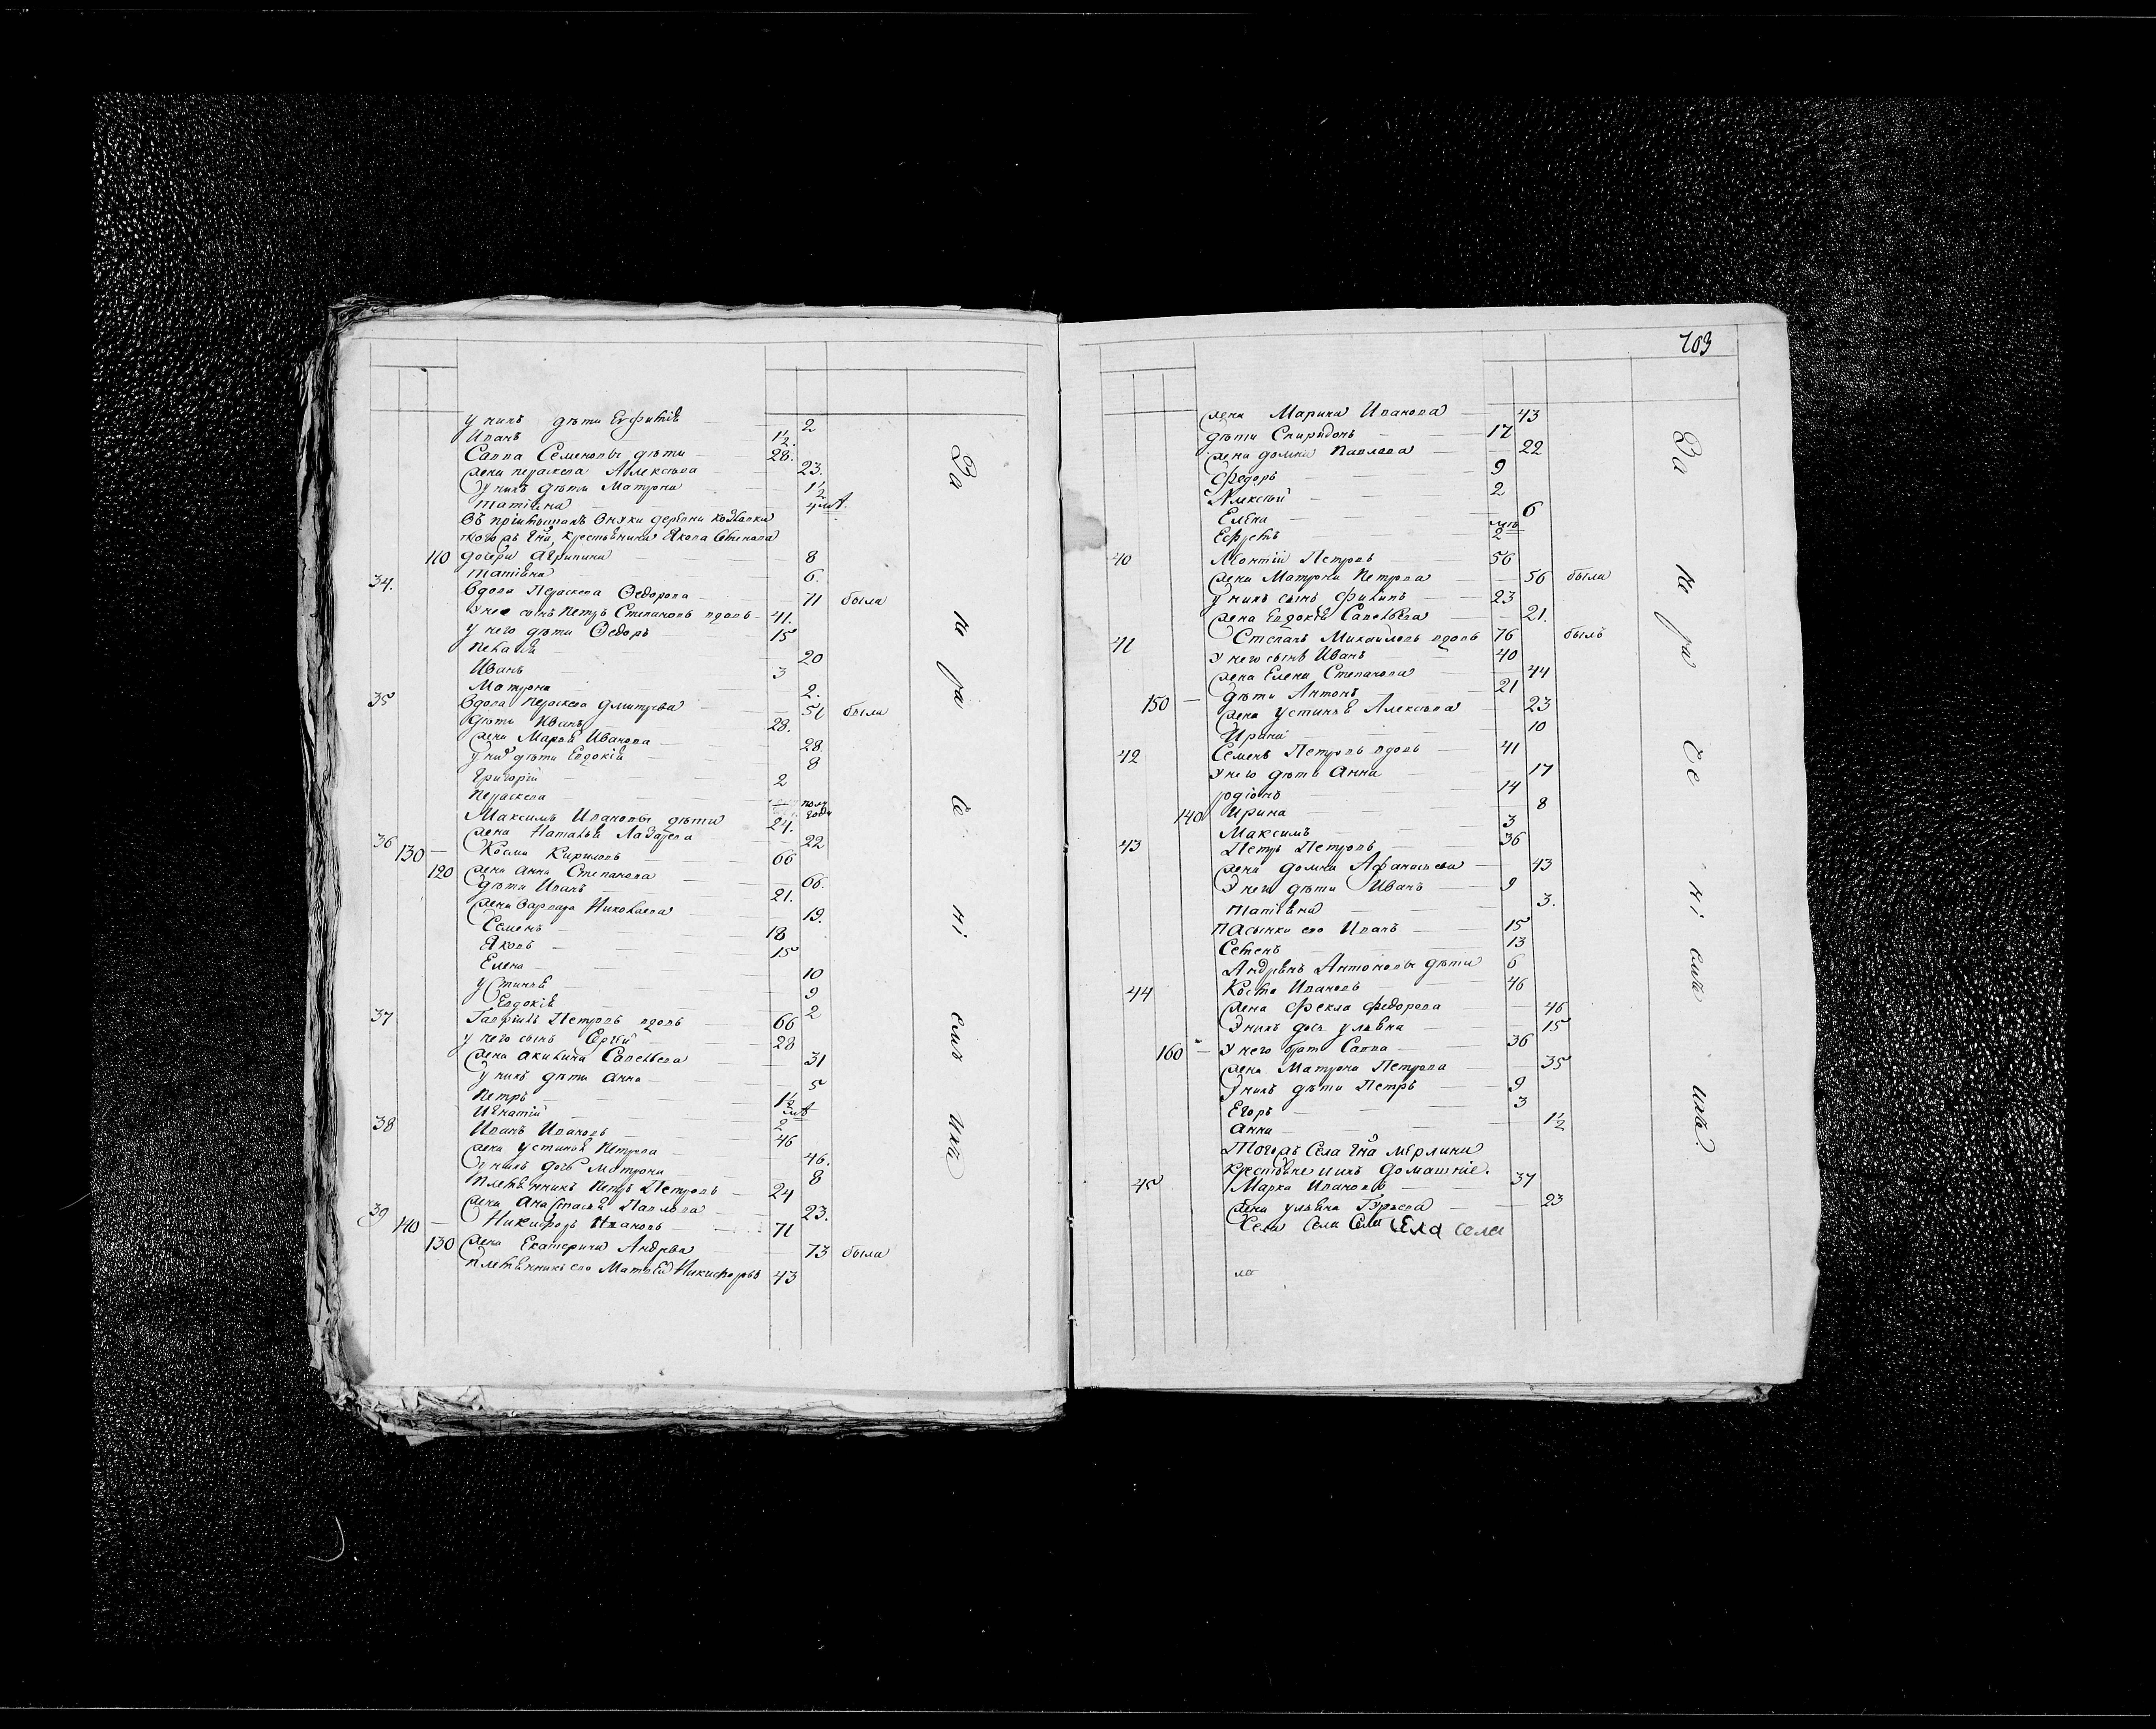 у нихъ дѣти Евфимія — 2
Иванъ — 1½.
Савва Семеновы дѣти — 28.
жена Параскева Алексѣева — 23.
у нихъ дѣти Матрона — 1½
Татіана
дочери Агрипина — 8
110
Татіана — 6.
34.
Вдова Параскева Ѳедорова — 71 была
У нее сынъ Петръ Степановъ вдовъ — 41.
у него дѣти Ѳедоръ — 15
Пелагія — 20
Иванъ — 3
Матрона — 2.
35
Вдова Параскева Дмитрева — 51 была
дѣти Иванъ — 28.
жена Марья Иванова — 28.
у них дѣти Евдокія — 8
Григорій — 2
Параскева — полу года
Максимъ Ивановы дѣти — 24.
жена Наталья Лазарева — 22
36 130 —
Косма Кириловъ — 66
120
жена Анна Степанова — 66.
дѣти Иванъ — 21.
жена Варвара Николаева — 19.
Семенъ — 18
Яковъ — 15
Елена — 10
Устинья — 9
Евдокія — 2
37
Гавріилъ Петровъ вдовъ — 66
у него сынъ Сергій — 28
жена Акилина Савельева — 31
у нихъ дѣти Анна — 5
Петръ — 1½
Игнатій — 2
38
Иванъ Ивановъ — 46
жена Устинья Петрова — 46.
у нихъ дочь Матрона — 8
Племянникъ Петръ Петровъ — 24
жена Анастасья Павлова — 23.
39 140 —
Никифоръ Ивановъ — 71
130
жена Екатерина Андрева — 73 была
племянникъ его Матвей Никифоровъ 43
За не ра че ні емъ ихъ
703
жена Марина Иванова — 43
дѣти Спиридонъ — 17
жена Домна Павлова — 22
Ѳедоръ — 9
Алексѣй — 2
Елена — 6
40
Леонтій Петровъ — 56
жена Матрона Петрова — 56 была
у нихъ сынъ Филипъ — 23
жена Евдокія Савельева — 21.
41
Степанъ Михайловъ вдовъ 76 былъ
у него сынъ Иванъ — 40
жена Елена Степанова — 44
дѣти Антонъ — 21
150 —
жена Устинья Алексѣева — 23
Ирина — 10
42
Семенъ Петровъ вдовъ — 41
у него дѣти Анна — 17
Родіонъ — 14
140
Ирина — 8
Максимъ — 3
43
Петръ Петровъ — 36
жена Домна Афанасьева — 43
У него дѣти Иванъ — 9
Татіана — 3.
пасынки его Иванъ — 15
Семенъ — 13
Андрѣянъ Антоновы дѣти — 6
44
Косма Ивановъ — 46
жена Фекла Федорова — 46
У нихъ дочь Ульяна — 15
160 —
У него братъ Савва — 36
жена Матрона Петрова — 35
У нихъ дѣти Петръ — 9
Егоръ — 3
Анна — 1½
Тогожъ села Гна Мерлина
крестьяне ихъ домашніе.
45
Марка Ивановъ — 37
жена Ульяна Гурьева — 23
Села Села Села Села села
За не ра че ні емъ ихъ.